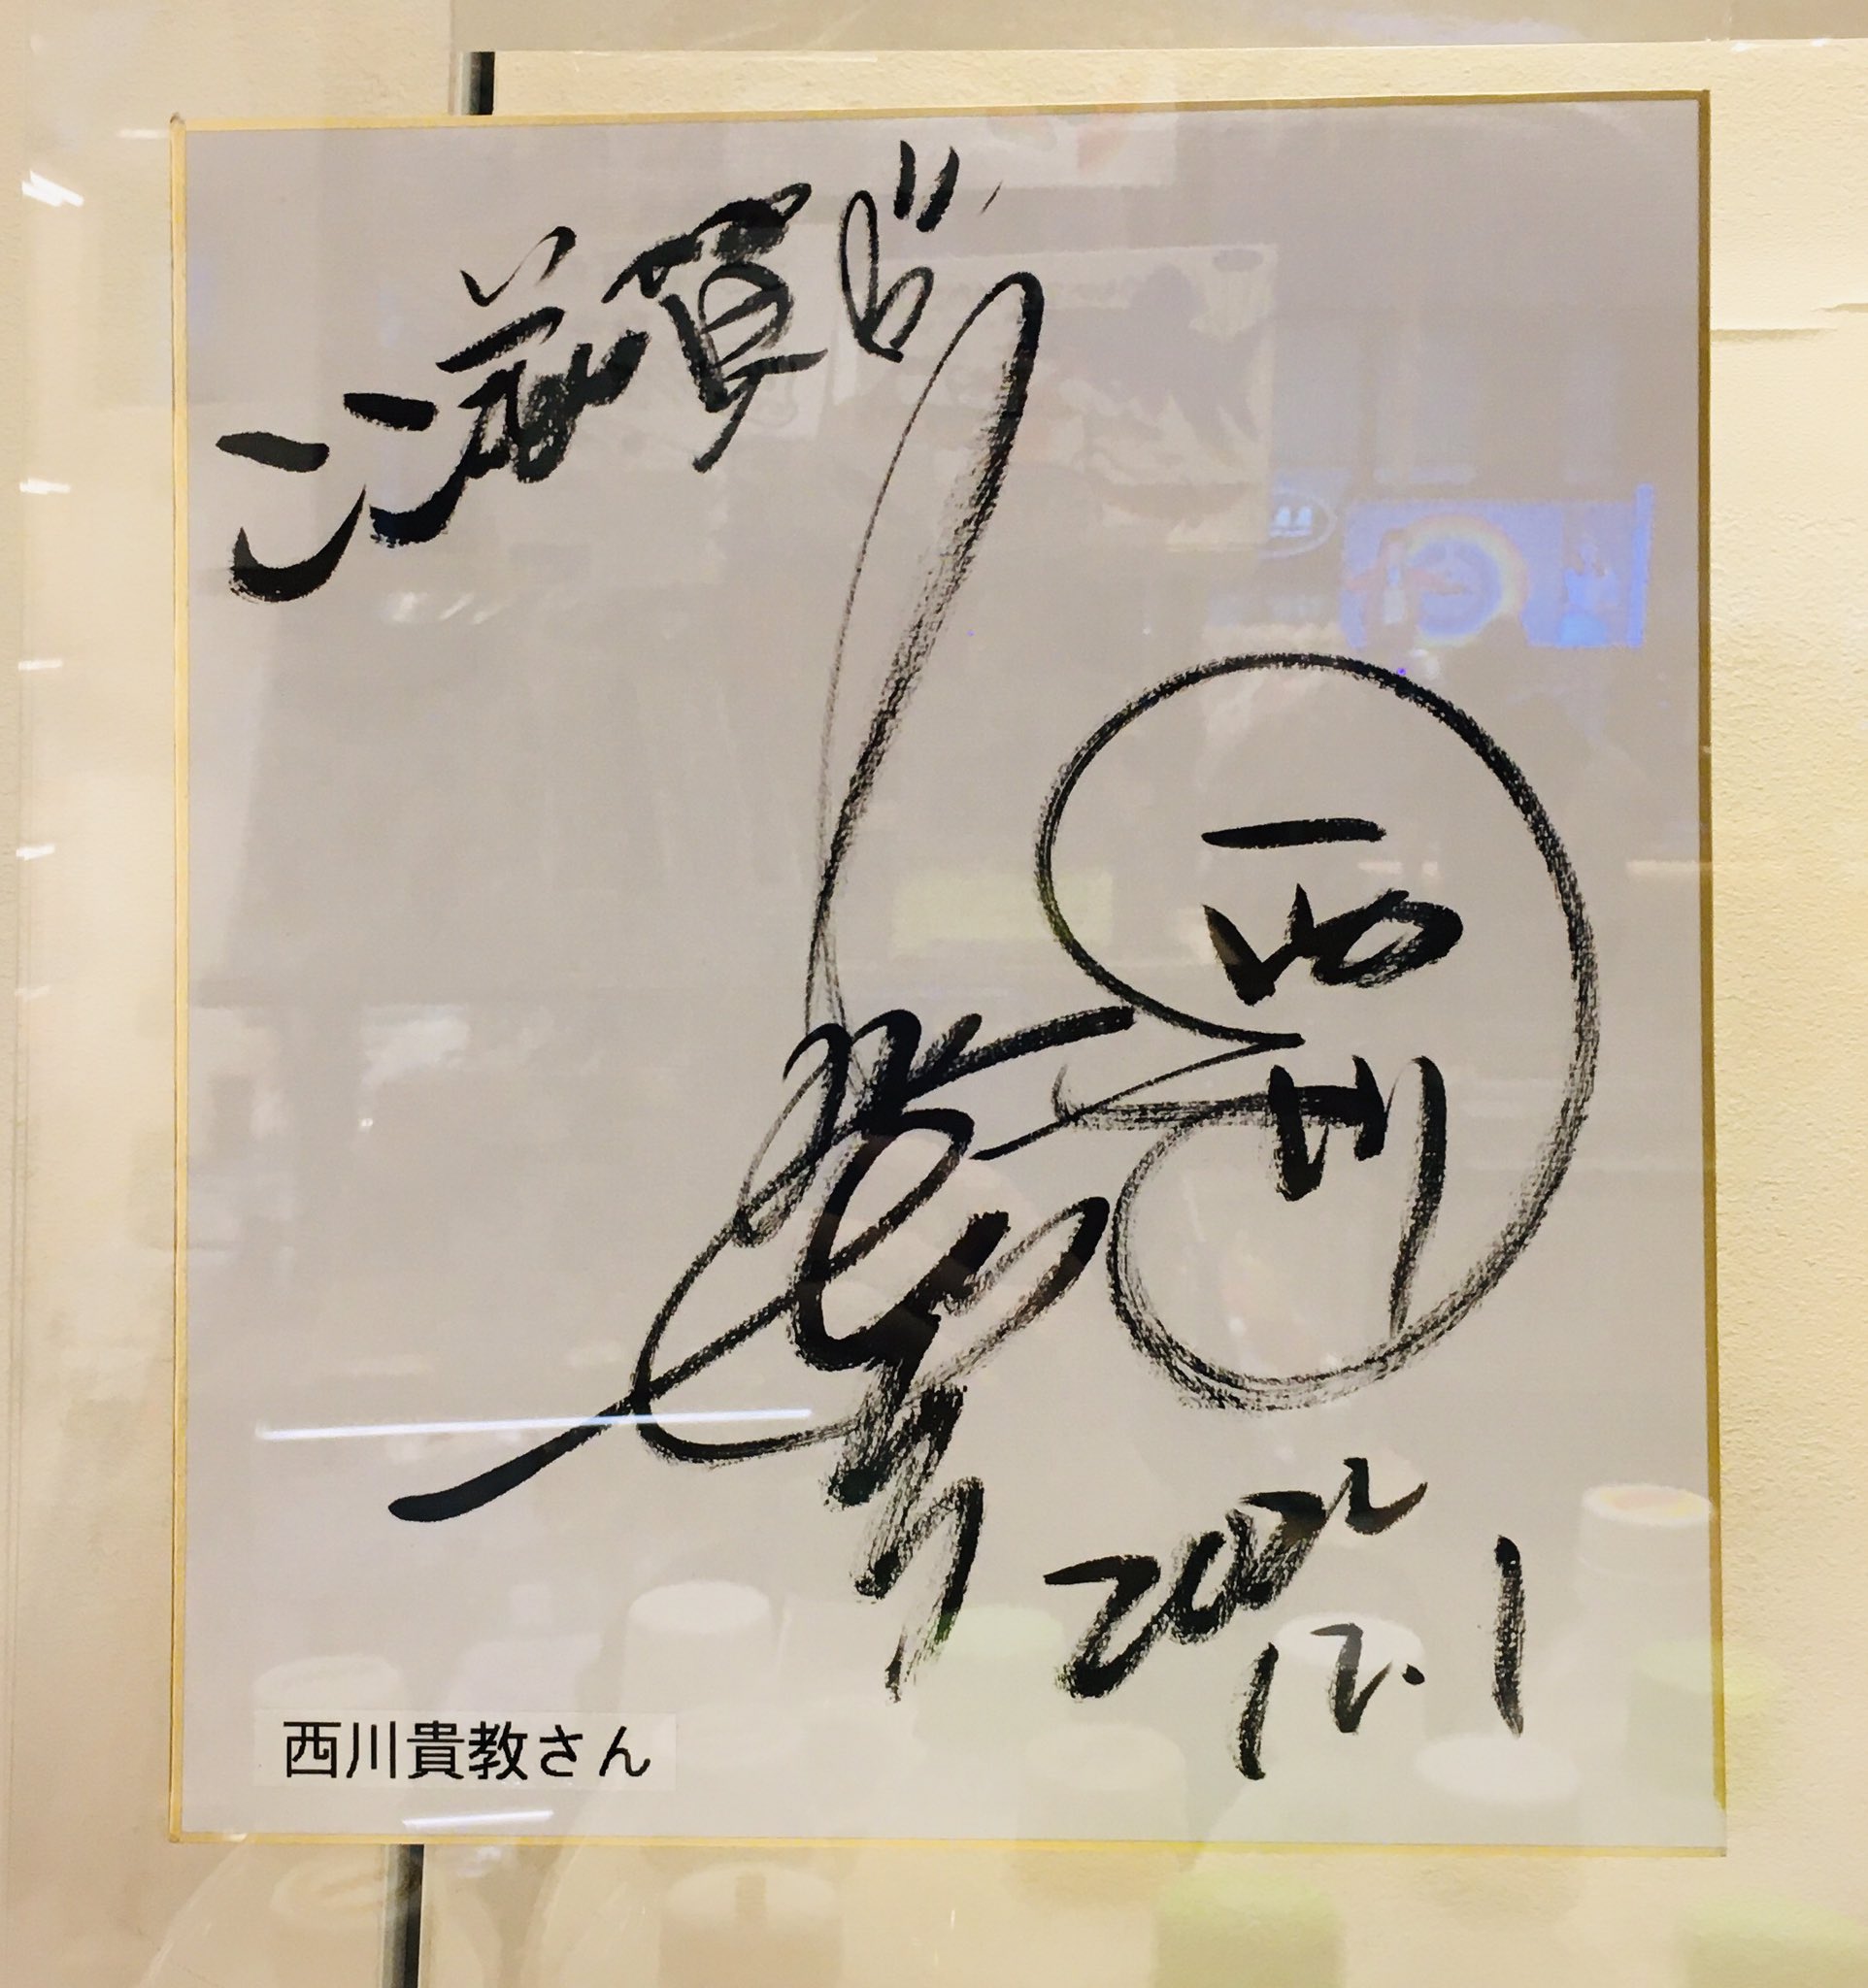 ここ滋賀
西川
2022
12.1
西川貴教さん